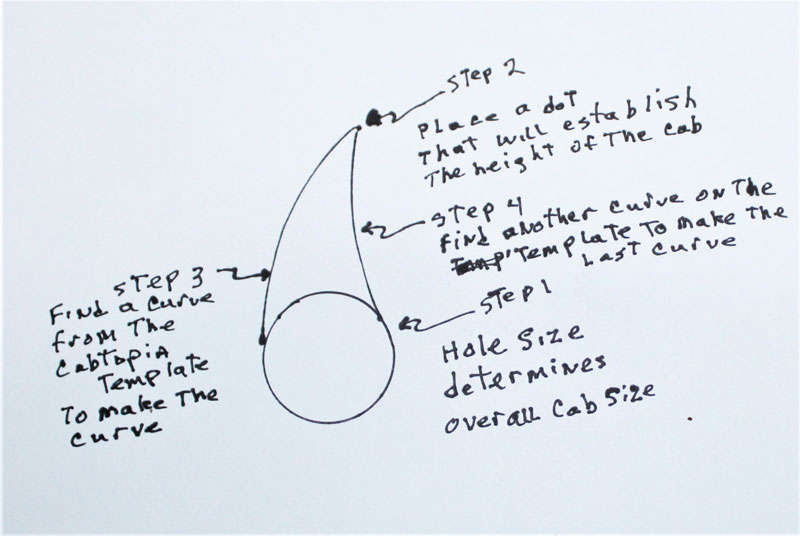 Step 2
Place a dot
That will establish
The height of The cab
Step 4
find another curve on The
Template To make The
Last curve
Step 3
Find a curve
from The
Cabtopia
Template
To make The
curve
Step 1
Hole Size
determines
overall Cab Size